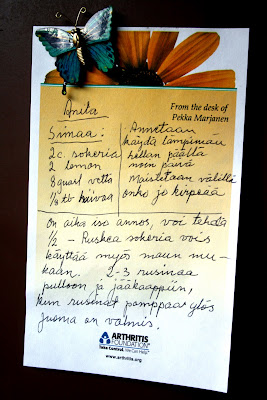 Anita
From the desk of
Pekka Marjanen
Simaa:
2 c. sokeria
2 lemon
8 quart vettä
1/8 tb hiivaa
Annetaan
käydä lämpimän
hellan päällä
noin päivä
Maistetaan välillä
onko jo kirpeää
on aika iso annos, voi tehdä
1/2 – Ruskea sokeria vois
käyttää myös maun mu-
kaan. 2-3 rusinaa
pulloon ja jääkaappiin,
kun rusinat pomppaa ylös
juoma on valmis.
ARTHRITIS
FOUNDATION
Take Control. We Can Help.
www.arthritis.org